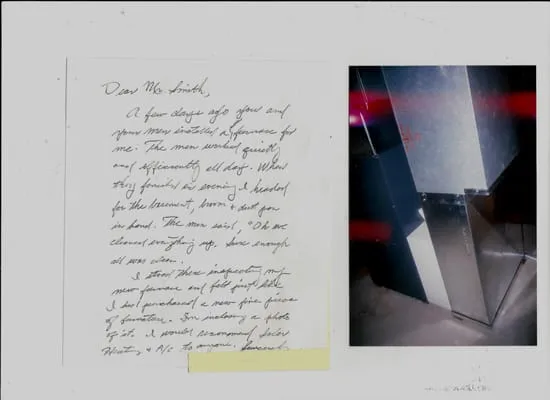 Dear Mr. Smith,
A few days ago you and
your men installed a furnace for
me. The men worked quietly
and efficiently all day. When
they finished in evening I headed
for the basement, broom & dust pan
in hand. The men said, "Oh we
cleaned everything up. Sure enough
all was clean.
I stood there inspecting my
new furnace and felt just like
I had purchased a new fine piece
of furniture. I'm inclosing a photo
of it. I would recommend Solar
Heating & A/C to anyone. Sincerely